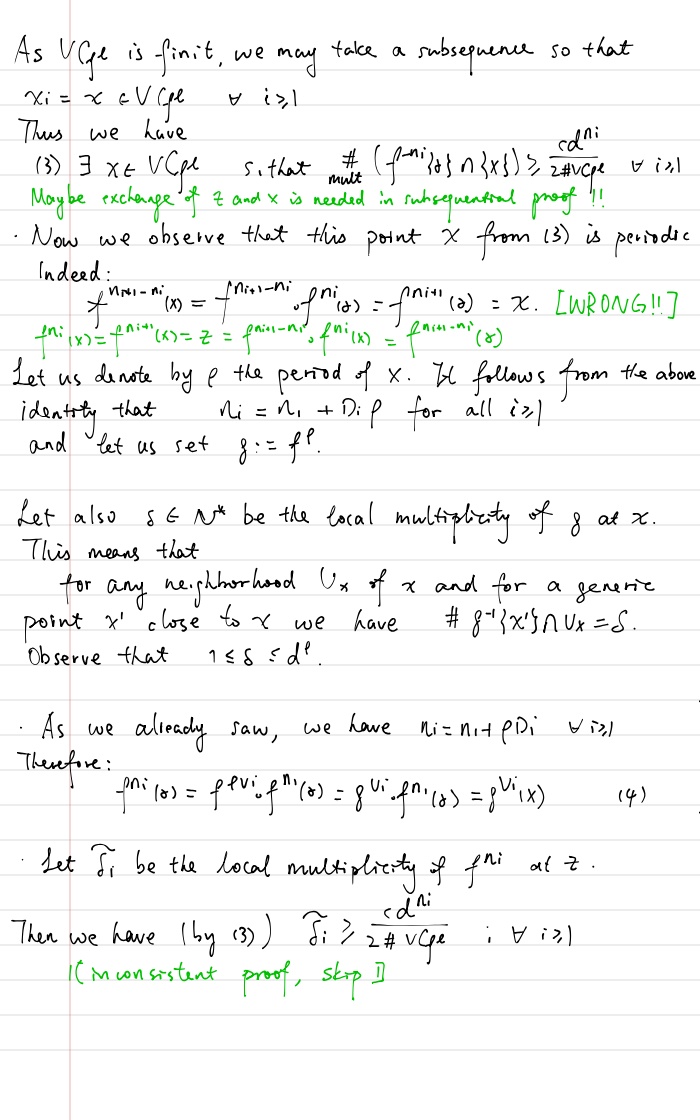 As VCge is finit, we may take a subsequence so that
xi = x ∈ VCge ∀ i≥1
Thus we have
(3) ∃ x ∈ VCge s.that #mult (f^{-ni}{z} ∩ {x}) ≥ cd^{ni} / 2#VCge ∀ i≥1
Maybe exchange of z and x is needed in subsequential proof !!
· Now we observe that this point x from (3) is periodic
Indeed:
f^{ni+1-ni}(x) = f^{ni+1-ni} ∘ f^{ni}(z) = f^{ni+1}(z) = x. [WRONG!!]
f^{ni}(x) = f^{ni+1}(x) = z = f^{ni+1-ni} ∘ f^{ni}(x) = f^{ni+1-ni}(z)
Let us denote by ρ the period of x. It follows from the above
identity that ni = n1 + Di ρ for all i≥1
and let us set g := f^ρ.
Let also δ ∈ N* be the local multiplicity of g at x.
This means that
for any neighborhood Ux of x and for a generic
point x' close to x we have # g^{-1}{x'} ∩ Ux = δ.
Observe that 1 ≤ δ ≤ d^ρ.
· As we already saw, we have ni = n1 + ρDi ∀ i≥1
Therefore:
f^{ni}(z) = f^{ρvi} ∘ f^{n1}(z) = g^{vi} ∘ f^{n1}(z) = g^{vi}(x) (4)
· Let δ̃i be the local multiplicity of f^{ni} at z.
Then we have (by (3)) δ̃i ≥ cd^{ni} / 2#VCge ; ∀ i≥1
[(inconsistent proof, skip)]